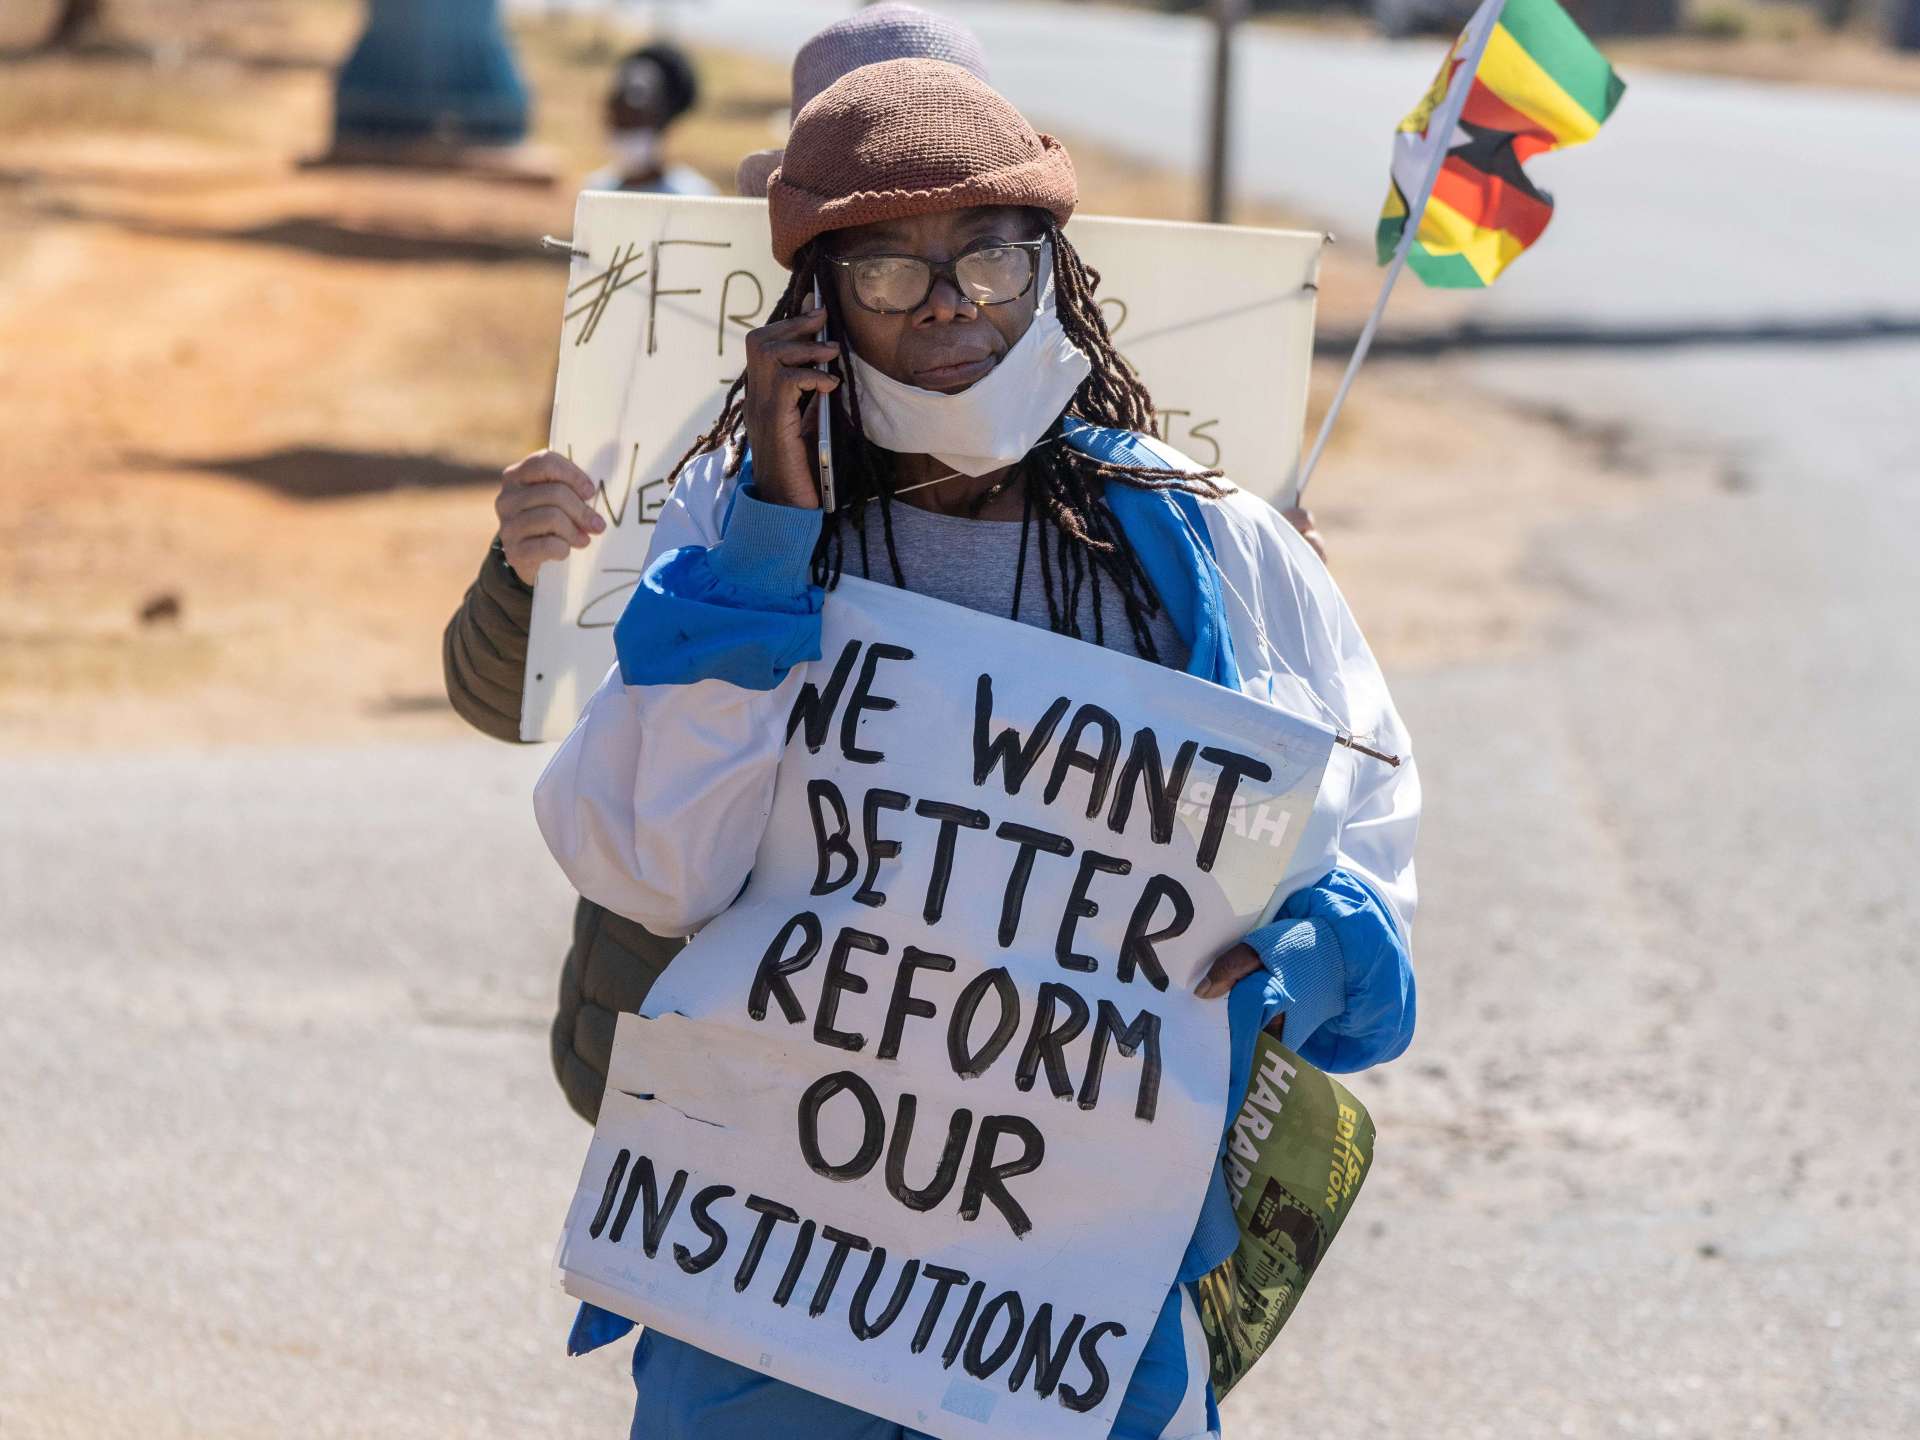 #FR
WE
TS
2
WE WANT
BETTER
REFORM
OUR
INSTITUTIONS
HARARE
15th
EDITION
IIFF
Film